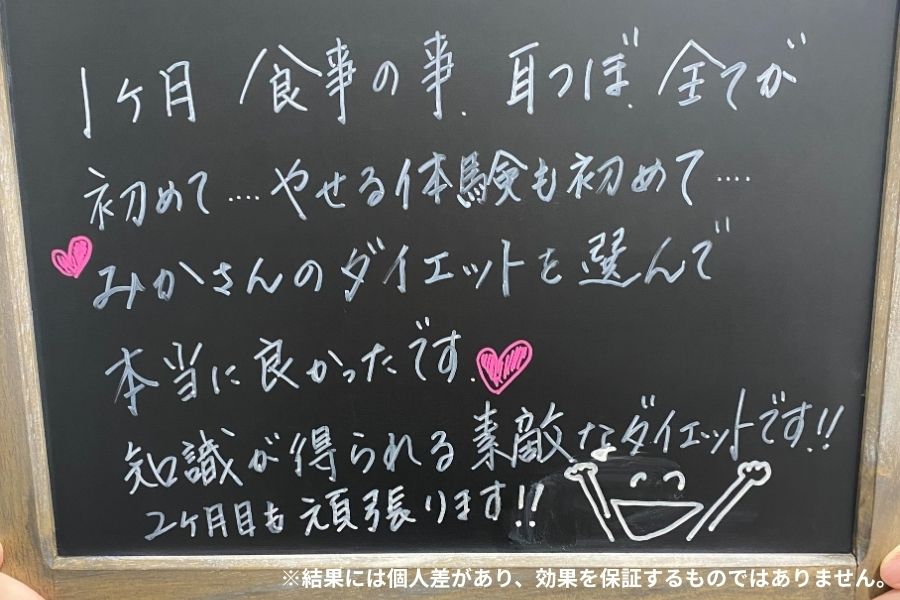 1ヶ月 食事の事、耳つぼ、全てが
初めて‥‥やせる体験も初めて‥‥
みかさんのダイエットを選んで
本当に良かったです。
知識が得られる素敵なダイエットです!!
2ヶ月目も頑張ります!!
※結果には個人差があり、効果を保証するものではありません。